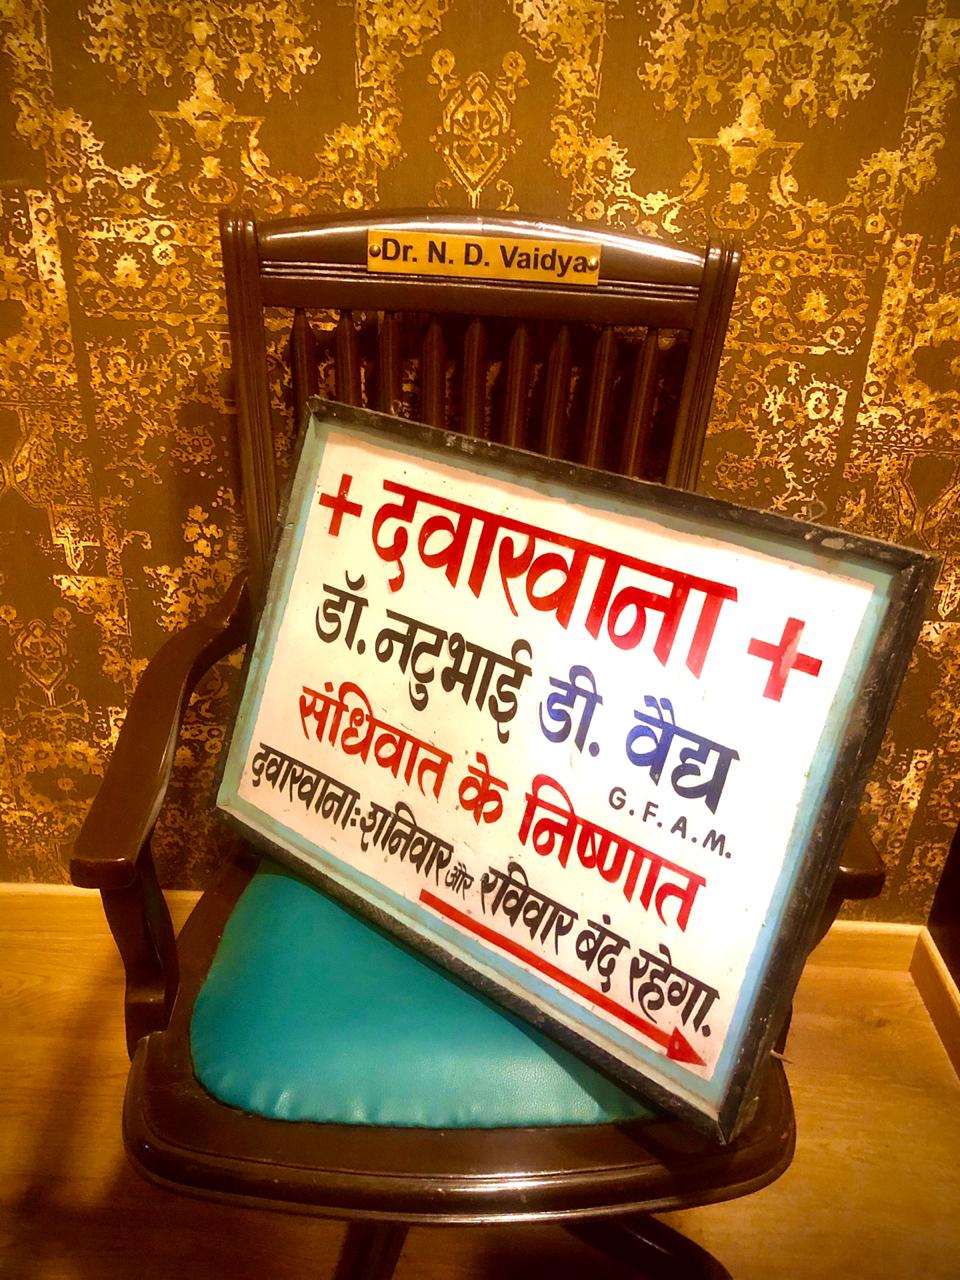 Dr. N. D. Vaidya
+ दवाखाना +
डॉ. नटुभाई डी. वैद्य
G.F.A.M.
संधिवात के निष्णात
दवाखाना:शनिवार और रविवार बंद रहेगा.